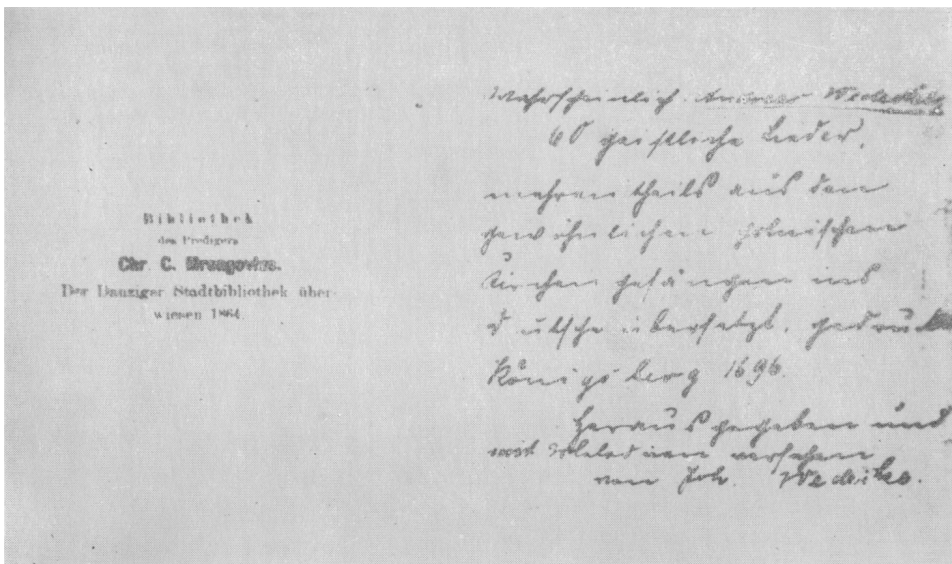 Bibliothek
des Predigers
Chr. C. Mrongovius.
Der Danziger Stadtbibliothek über-
wiesen 1864.
Wahrscheinlich Andreas Wedecke
60 geistliche Lieder,
mehren theils aus den
gewöhnlichen polnischen
Kirchen gesängen ins
deutsche übersetzt. gedruckt
Königsberg 1696.
Heraus gegeben und
mit Melodieen versehen
von Joh. Wedecke.